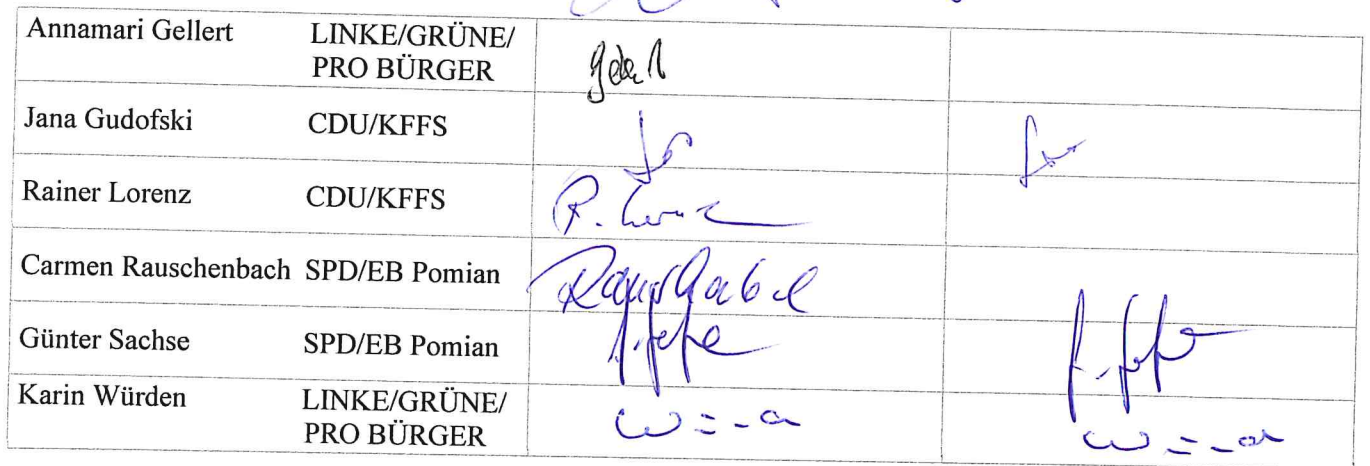 Annamari Gellert LINKE/GRÜNE/
PRO BÜRGER
Jana Gudofski CDU/KFFS
Rainer Lorenz CDU/KFFS
R. Lorenz
Carmen Rauschenbach SPD/EB Pomian
Günter Sachse SPD/EB Pomian
Karin Würden LINKE/GRÜNE/
PRO BÜRGER